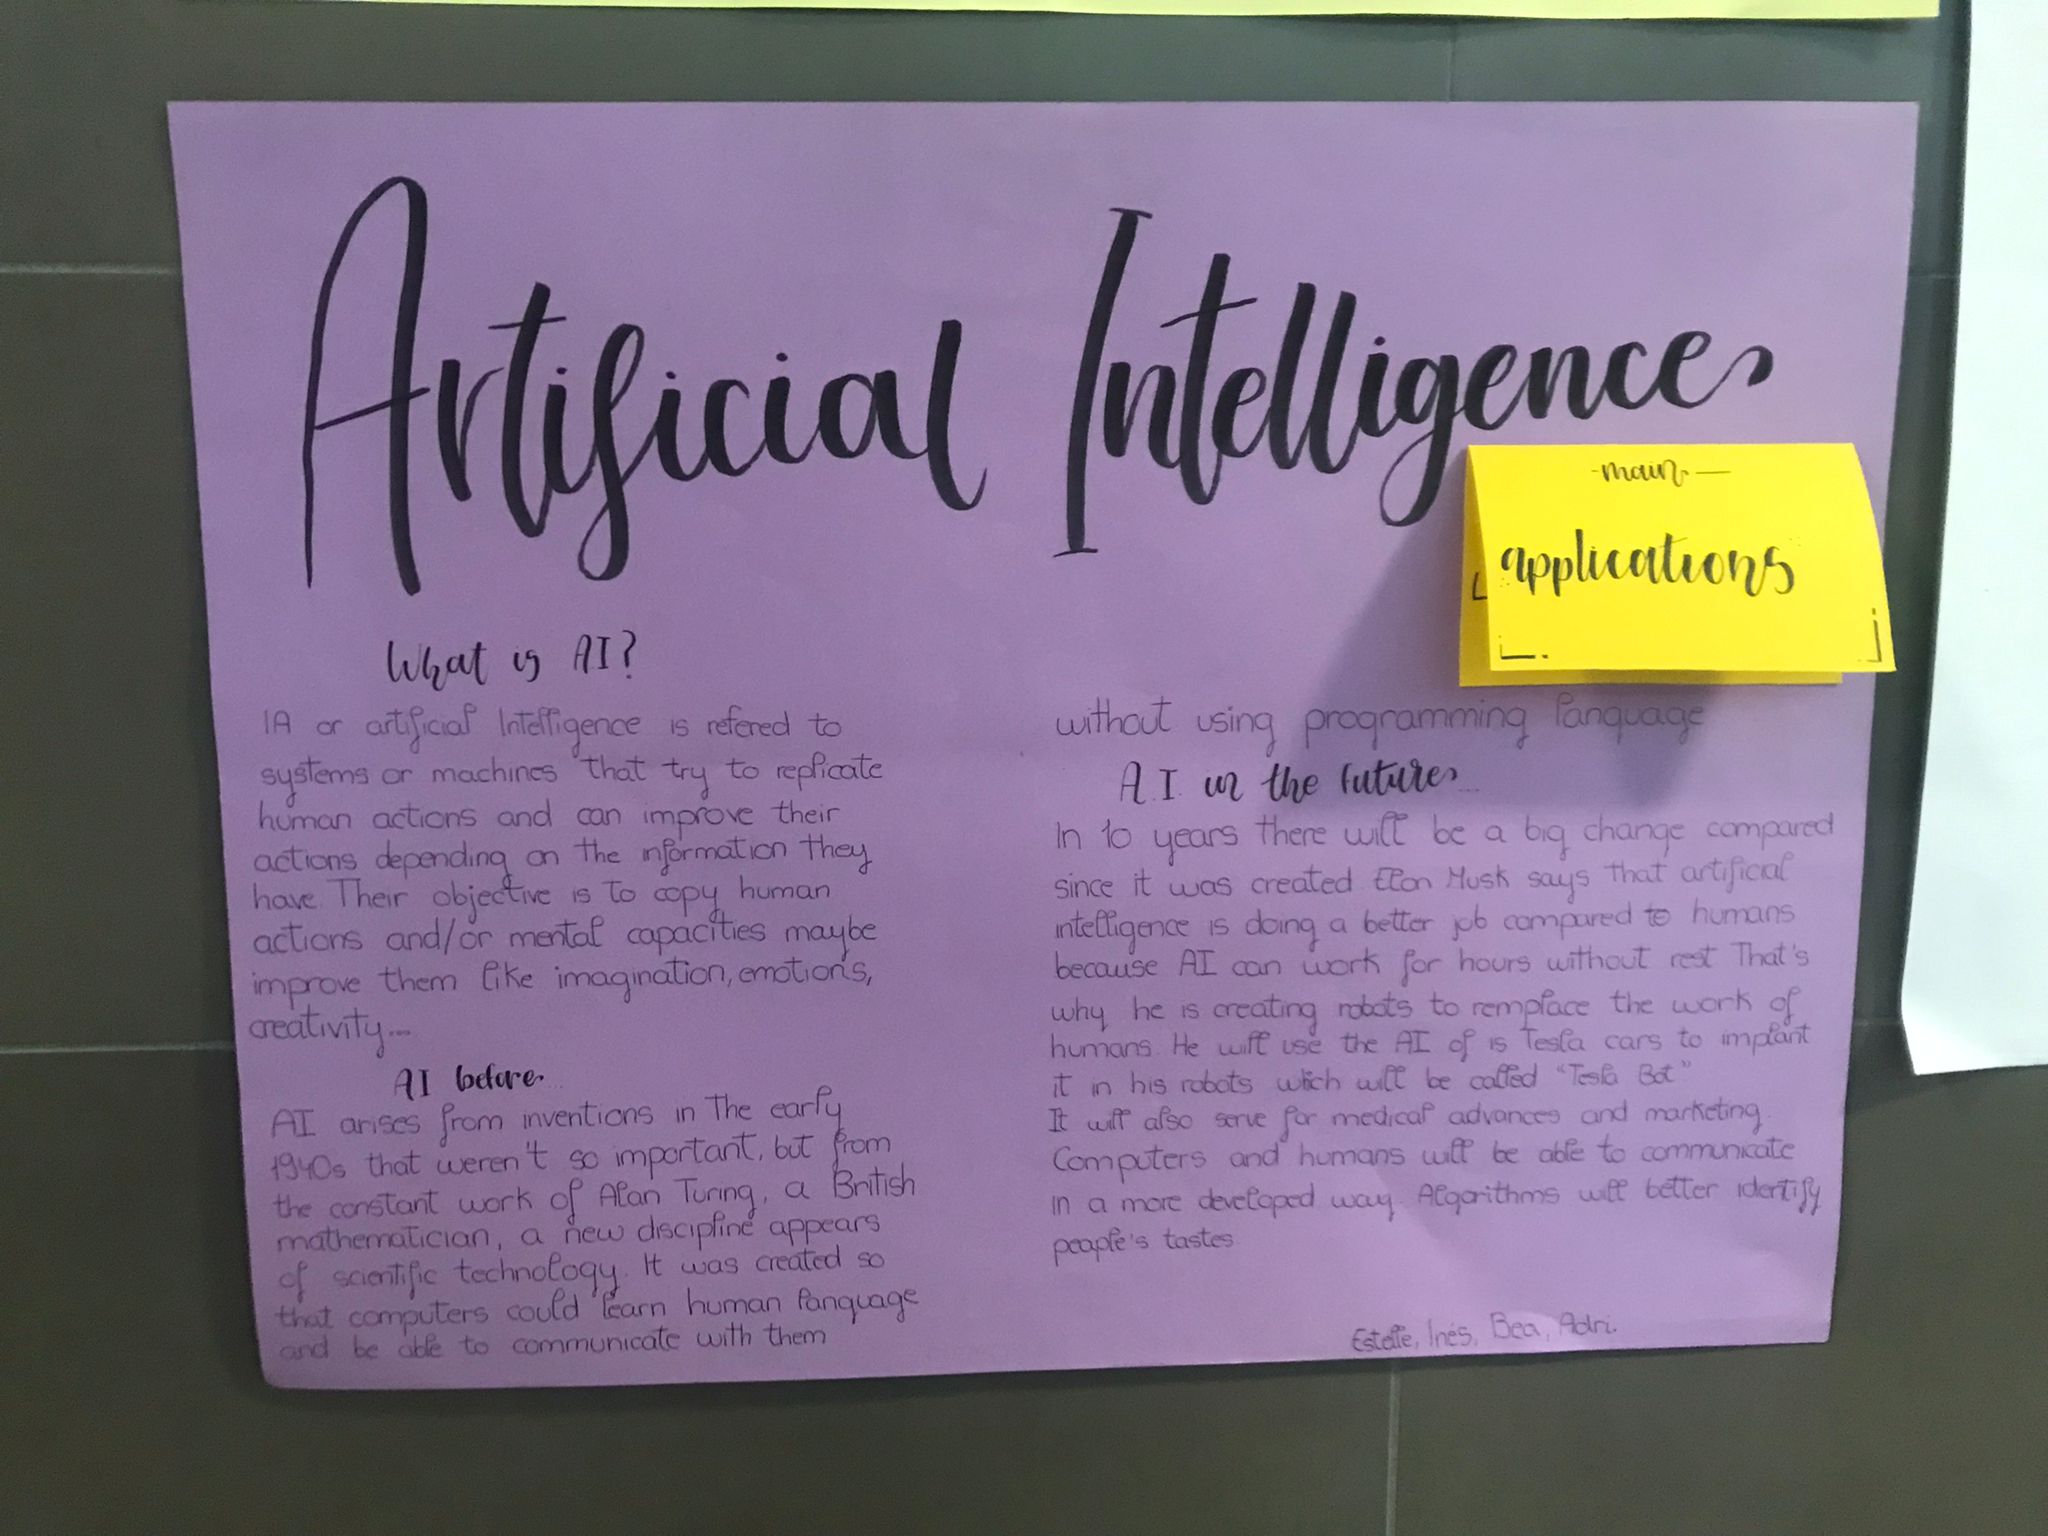 Artificial Intelligence
-main-
applications
What is AI?
IA or artificial Intelligence is refered to
systems or machines that try to replicate
human actions and can improve their
actions depending on the information they
have. Their objective is to copy human
actions and/or mental capacities maybe
improve them like imagination, emotions,
creativity...
AI before...
AI arises from inventions in the early
1940s that weren't so important, but from
the constant work of Alan Turing, a British
mathematician, a new discipline appears
of scientific technology. It was created so
that computers could learn human language
and be able to communicate with them
without using programming language
A.I. in the future...
In 10 years there will be a big change compared
since it was created. Elon Musk says that artificial
intelligence is doing a better job compared to humans
because AI can work for hours without rest. That's
why he is creating robots to remplace the work of
humans. He will use the AI of is Tesla cars to implant
it in his robots which will be called "Tesla Bot"
It will also serve for medical advances and marketing.
Computers and humans will be able to communicate
in a more developed way. Algorithms will better identify
people's tastes
Estelle, Inés, Bea, Adri.